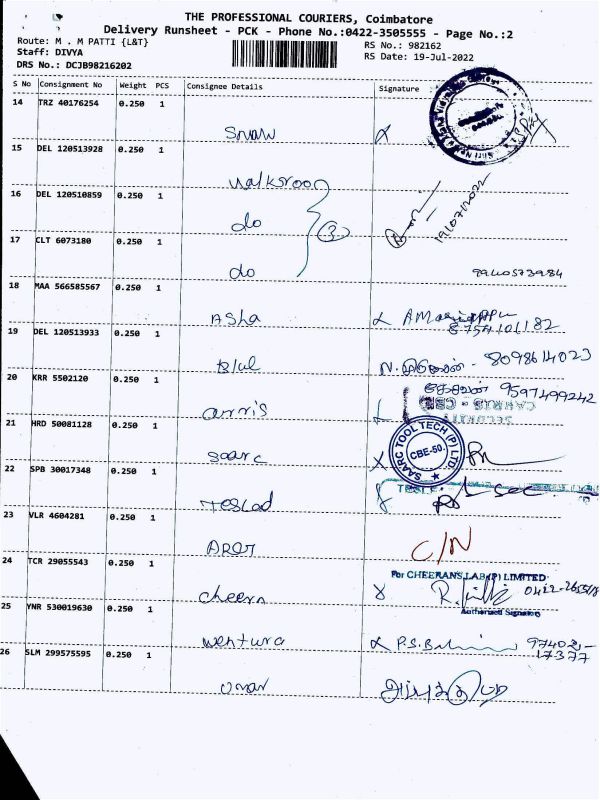 THE PROFESSIONAL COURIERS, Coimbatore
Delivery Runsheet - PCK - Phone No.:0422-3505555 - Page No.:2
Route: M . M PATTI {L&T}
RS No.: 982162
Staff: DIVYA
RS Date: 19-Jul-2022
DRS No.: DCJB98216202
S No Consignment No Weight PCS Consignee Details Signature
14 TRZ 40176254 0.250 1
15 DEL 120513928 0.250 1
Walkaroo
16 DEL 120510859 0.250 1
do 3
19/07/2022
17 CLT 6073180 0.250 1
do 9940573984
18 MAA 566585567 0.250 1
Asha
8754101182
19 DEL 120513933 0.250 1
Blul N. 8098614023
9597499242
20 KRR 5502120 0.250 1
arris
SECURITY
21 HRD 50081128 0.250 1
Saarc
SAARC TOOL TECH (P) LTD
CBE-50.
22 SPB 30017348 0.250 1
Teslad
23 VLR 4604281 0.250 1
C/N
24 TCR 29055543 0.250 1
For CHEERAN'S LAB (P) LIMITED
Cheern
Authorised Signatory
25 YNR 530019630 0.250 1
Wentura P.S. 97402-
17377
26 SLM 299575595 0.250 1
omar